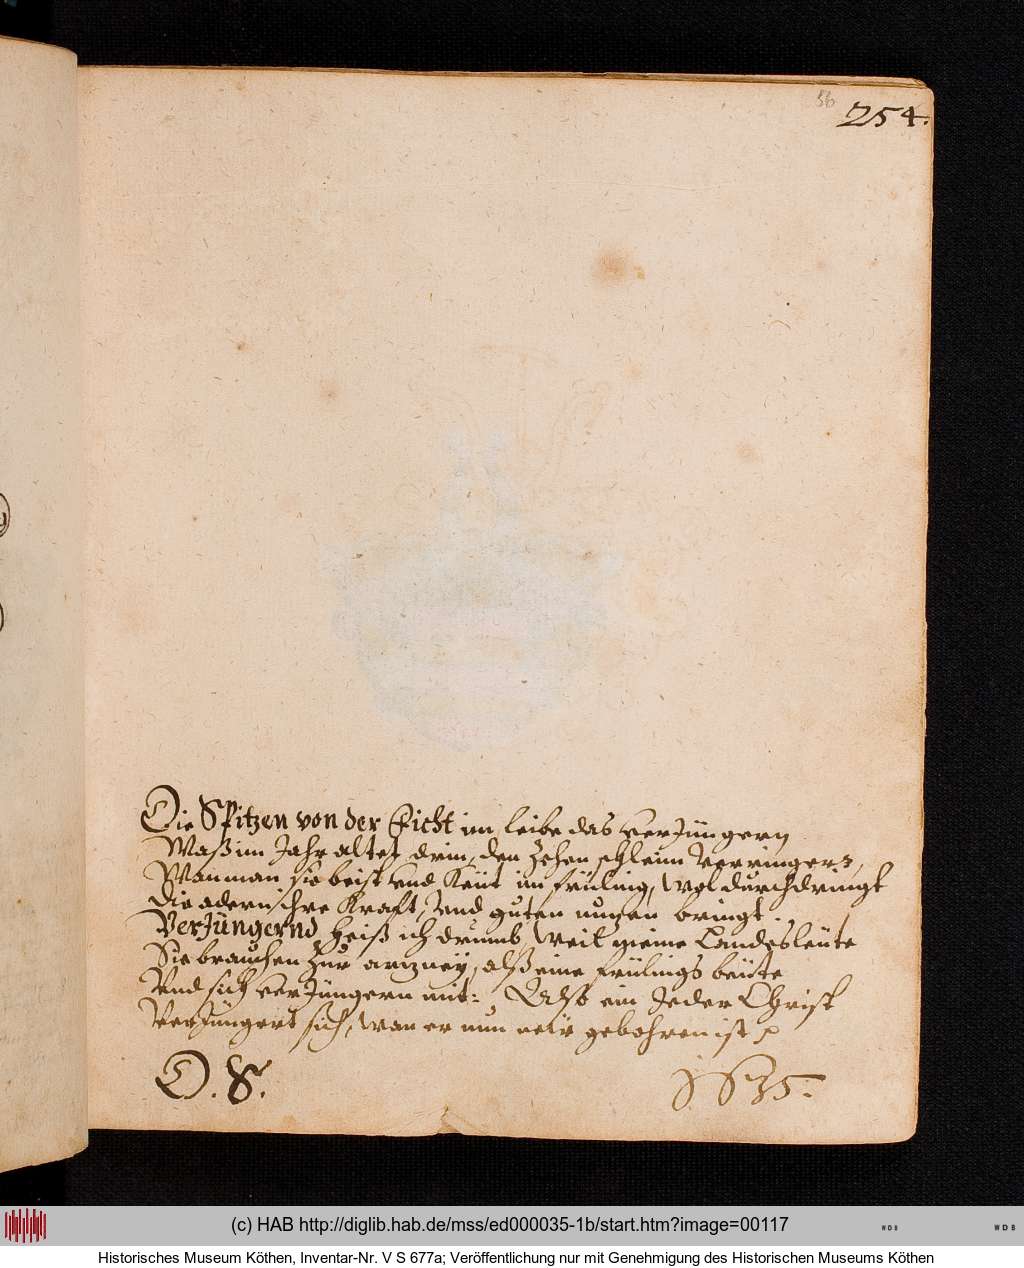 56
254.
Die Spitzen von der Ficht im leibe das verJüngern
Waß im Jahr altet drin, den Zehen schleim verringern,
Wan man sie beist und Keüt im früling, wol durchdringt
die adern ihre Kraft, und guten nuzen bringt.
VerJüngernd heiß ich drumb, weil meine Landesleüte
Sie brauchen zur arzney, alß eine frülings beüte
Und sich verJüngern mit: Also ein Jeder Christ
VerJüngert sich, wan er nun neüw gebohren ist
D. S.
(c) HAB http://diglib.hab.de/mss/ed000035-1b/start.htm?image=00117
WDB
WDB
Historisches Museum Köthen, Inventar-Nr. V S 677a; Veröffentlichung nur mit Genehmigung des Historischen Museums Köthen